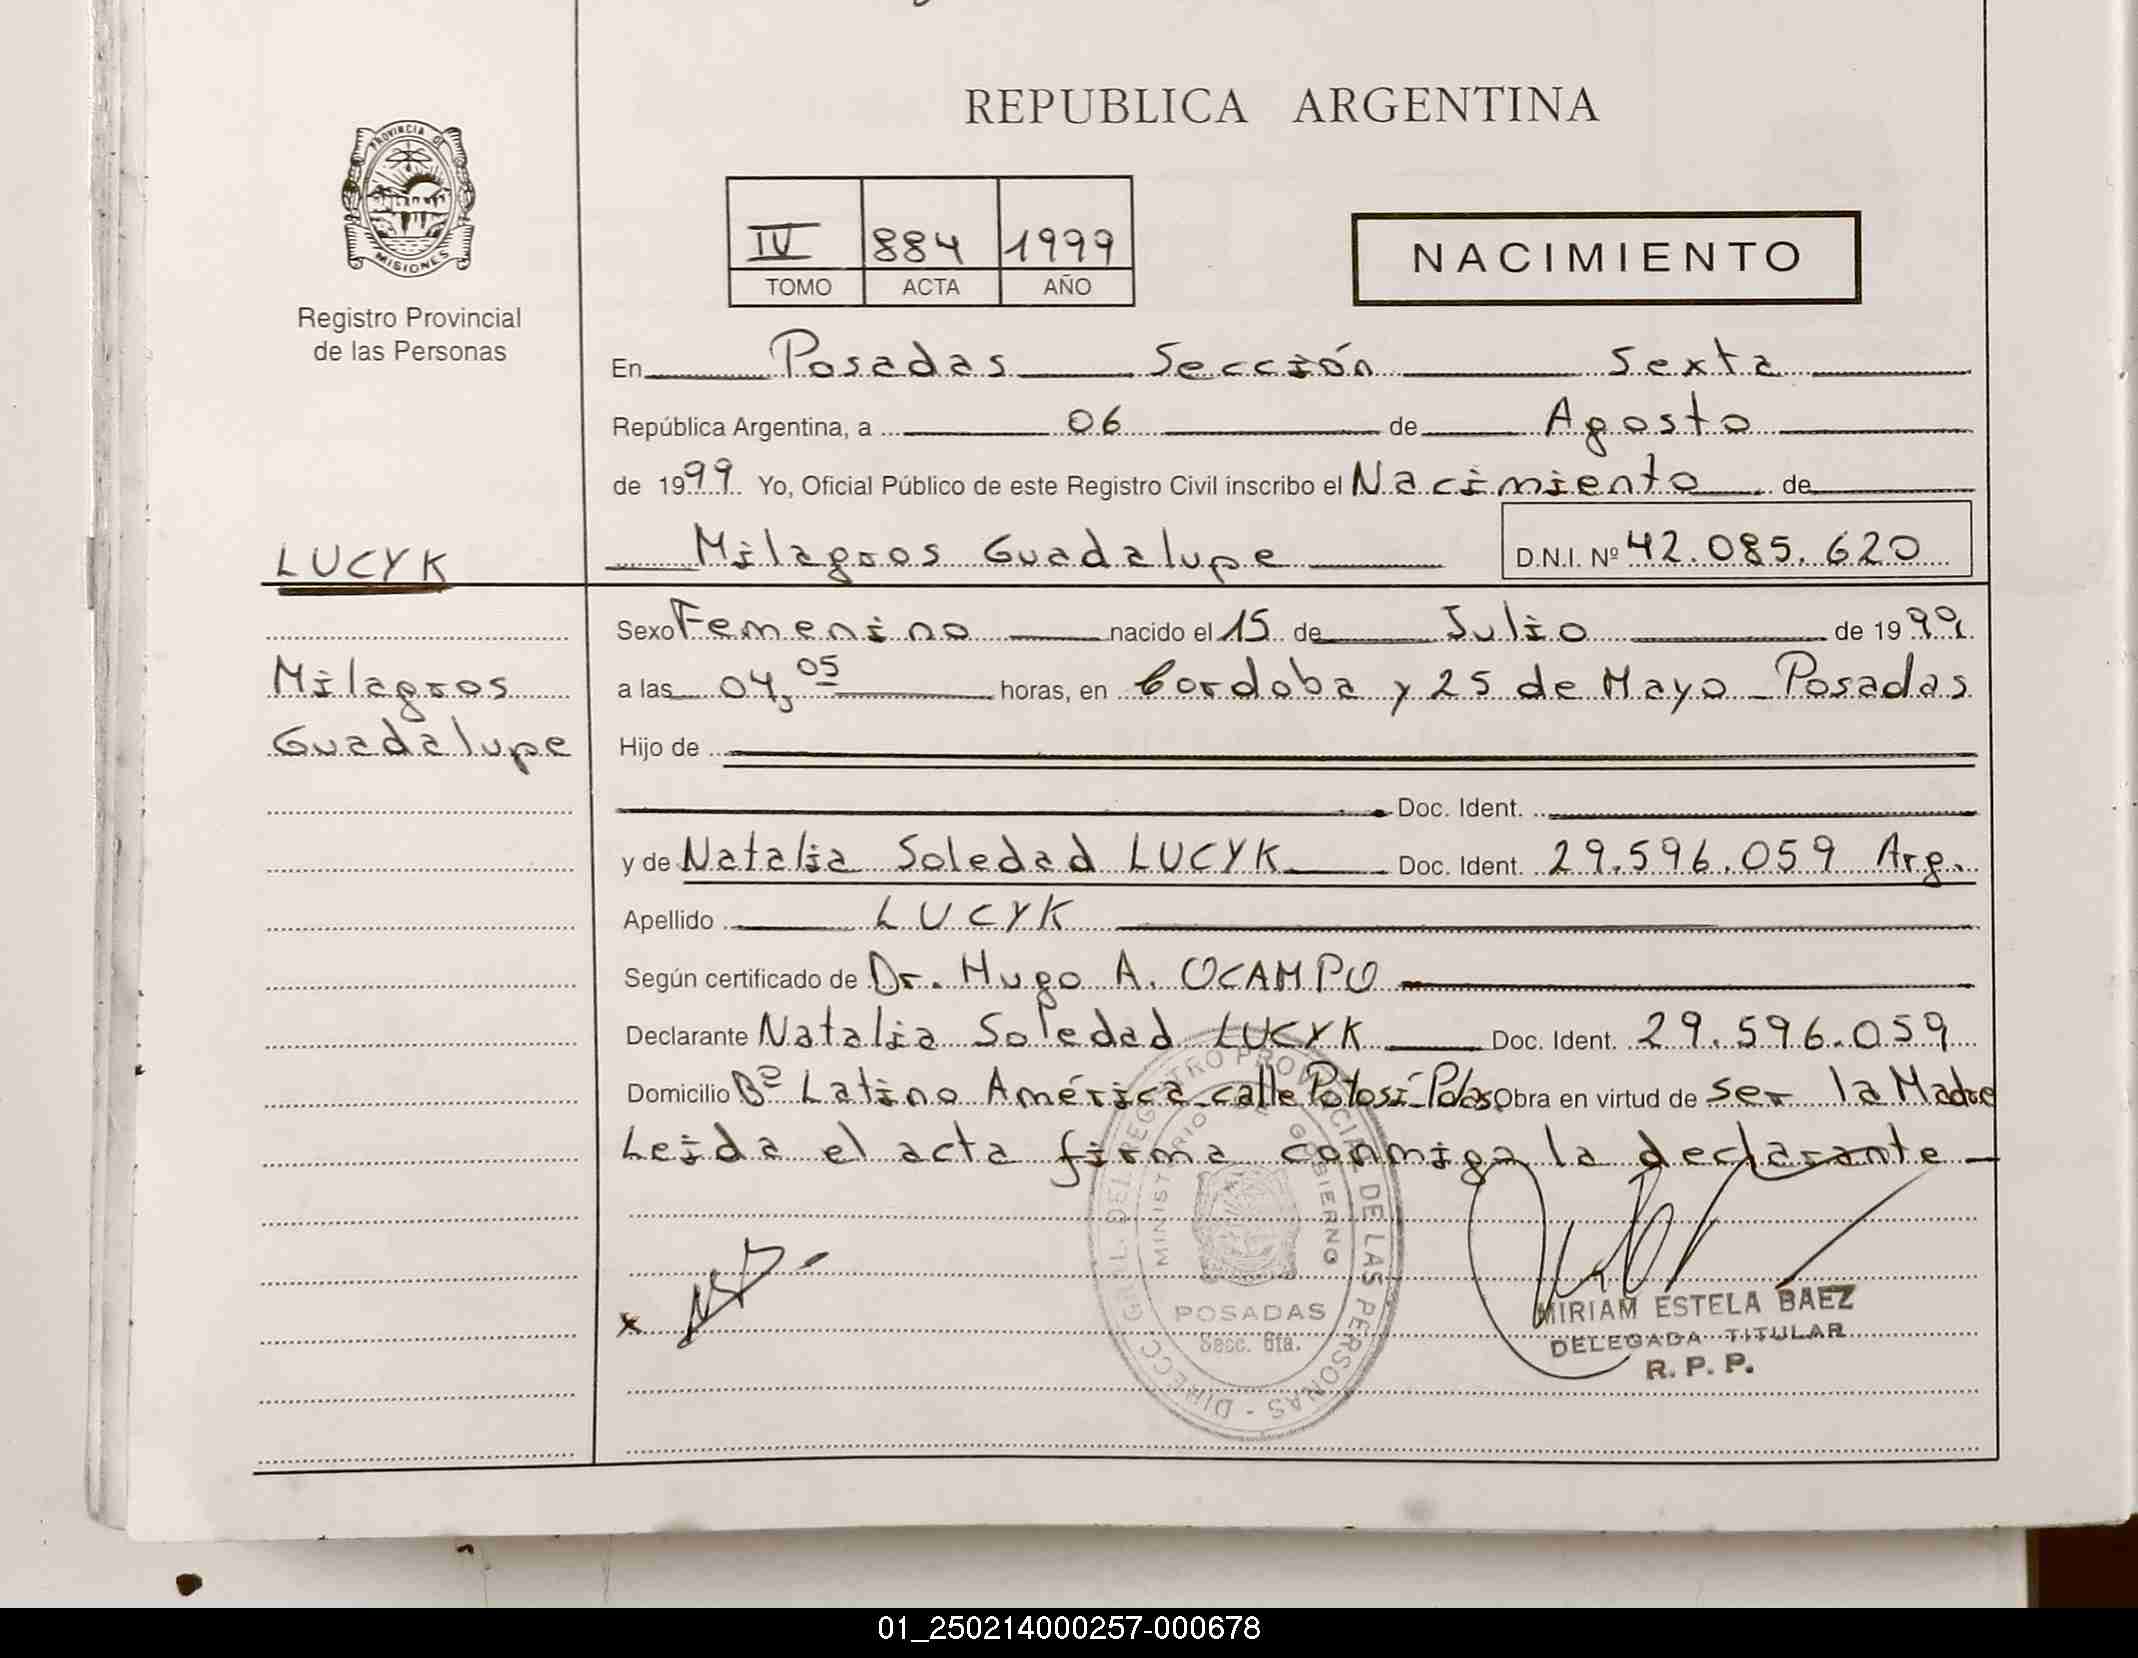 REPUBLICA ARGENTINA
PROVINCIA DE
MISIONES
Registro Provincial
de las Personas
IV 884 1999
TOMO ACTA AÑO
NACIMIENTO
En Posadas Sección Sexta
República Argentina, a 06 de Agosto
de 1999 Yo, Oficial Público de este Registro Civil inscribo el Nacimiento de
Milagros Guadalupe D.N.I. Nº 42.085.620
LUCYK
Milagros
Guadalupe
Sexo Femenino nacido el 15 de Julio de 1999
a las 04,05 horas, en Cordoba y 25 de Mayo - Posadas
Hijo de
Doc. Ident.
y de Natalia Soledad LUCYK Doc. Ident. 29.596.059 Arg.
Apellido LUCYK
Según certificado de Dr. Hugo A. OCAMPO
Declarante Natalia Soledad LUCYK Doc. Ident. 29.596.059
Domicilio Bº Latino América calle Potosí-Pdas Obra en virtud de ser la Madre
Leida el acta firma conmigo la declarante
DIRECC. GRAL. DEL REGISTRO PROVINCIAL DE LAS PERSONAS -
MINISTERIO DE GOBIERNO
POSADAS
Secc. 6ta.
x
MIRIAM ESTELA BAEZ
DELEGADA TITULAR
R. P. P.
01_250214000257-000678